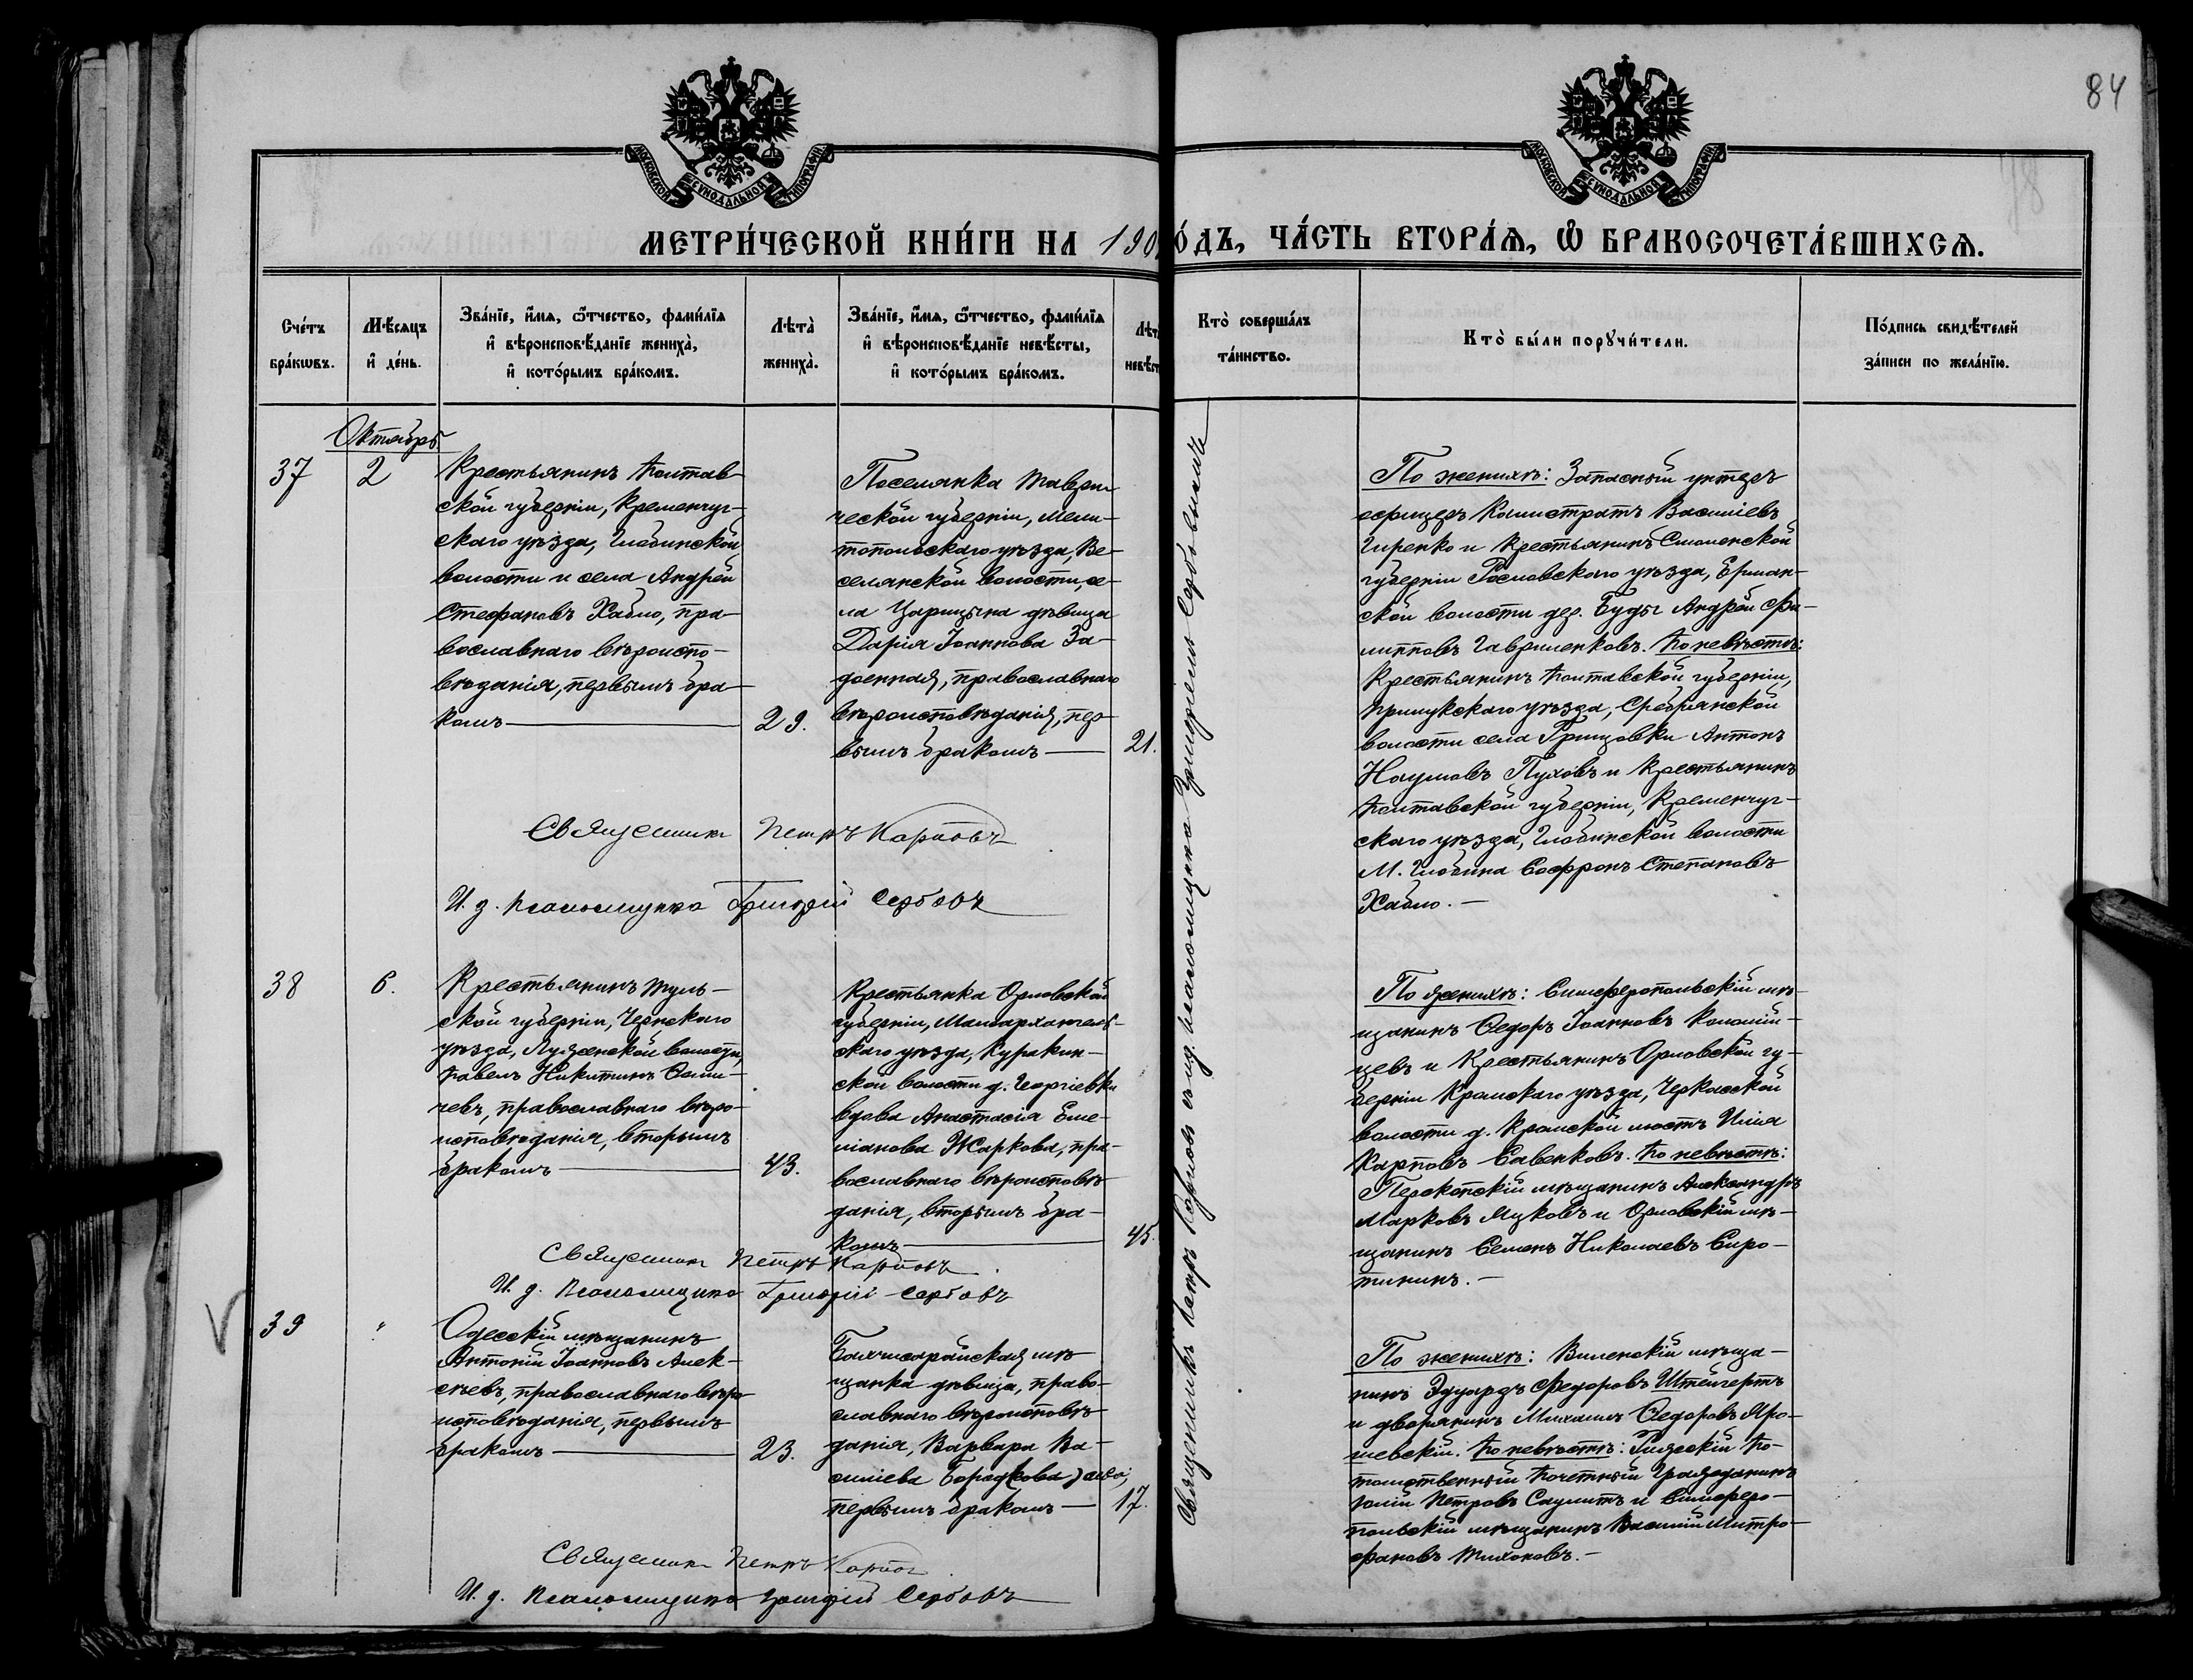 84
МОСКОВСКОЙ СѴНОДАЛЬНОЙ ТИПОГРАФІИ
МОСКОВСКОЙ СѴНОДАЛЬНОЙ ТИПОГРАФІИ
МЕТРИ́ЧЕСКОЙ КНИ́ГИ НА 190
О́ДЪ, ЧА́СТЬ ВТОРА́Ѧ, Ѽ БРАКОСОЧЕТА́ВШИХСѦ.
Сче́тъ
бра́кѡвъ.
Мѣ́сяцъ
и҆ де́нь.
Зва́нїе, и҆́мѧ, ѻ҆́тчество, фами́лїѧ
и҆ вѣроисповѣ́данїе жениха̀,
и҆ кото́рымъ бра́комъ.
Лѣта̀
жениха̀.
Зва́нїе, и҆́мѧ, ѻ҆́тчество, фами́лїѧ
и҆ вѣроисповѣ́данїе невѣ́сты,
и҆ кото́рымъ бра́комъ.
Лѣт
невѣст
Кто̀ соверша́лъ
та́инство.
Кто̀ бы́ли порꙋчи́тели.
По́дпись свидѣ́телей
за́писи по жела́нїю.
Октябрь
37
2
Крестьянинъ Полтав-
ской губерніи, Кременчуг-
скаго уѣзда, Глобинской
волости и села Андрей
Стефановъ Хабло, пра-
вославнаго вѣроиспо-
вѣданія, первымъ бра-
комъ
29.
Поселянка Таври-
ческой губерніи, Мели-
топольскаго уѣзда, Ве-
селянской волости, се-
ла Царицына дѣвица
Дарія Іоаннова За-
доенная, православнаго
вѣроисповѣданія, пер-
вымъ бракомъ
21.
Священникъ Петръ Карповъ
И. д. Псаломщика Григорій Сербовъ
По женихѣ: Запасный унтеръ
офицеръ Калистратъ Васильевъ
Гиренко и Крестьянинъ Смоленской
губерніи Рославскаго уѣзда, Ерман-
ской волости дер. Буды Андрей Фи-
липповъ Гавриленковъ. По невѣстѣ:
Крестьянинъ Полтавской губерніи,
Прилукскаго уѣзда, Сребрянской
волости села Грицовки Антонъ
Наумовъ Пуховъ и Крестьянинъ
Полтавской губерніи, Кременчуг-
скаго уѣзда, Глобинской волости
М. Глобина Софронъ Степановъ
Хабло.
38
6.
Крестьянинъ Туль-
ской губерніи, Чернскаго
уѣзда, волости,
Павелъ Никитинъ
чевъ, православнаго вѣро-
исповѣданія, вторымъ
бракомъ
43.
Крестьянка Орловской
губерніи, Малоархангель-
скаго уѣзда, Куракин-
ской волости д. Георгіевки
вдова Анастасія Еме-
ліанова Жаркова, пра-
вославнаго вѣроисповѣ-
данія, вторымъ бра-
комъ
45.
Священникъ Петръ Карповъ
И. д. Псаломщика Григорій Сербовъ
По женихѣ: Симферопольскій мѣ-
щанинъ Ѳедоръ Іоанновъ Коломій-
цевъ и Крестьянинъ Орловской гу-
берніи Кромскаго уѣзда, Черкасской
волости д. Кромской мостъ Илія
Карповъ Савенковъ. По невѣстѣ:
Перекопскій мѣщанинъ Александръ
Марковъ Муковъ и Орловскій мѣ-
щанинъ Семенъ Николаевъ Сиро-
тининъ.
39
"
Одесскій мѣщанинъ
Антоній Іоанновъ Алек-
сѣевъ, православнаго вѣро-
исповѣданія, первымъ
бракомъ
23.
Бахчисарайская мѣ-
щанка дѣвица, право-
славнаго вѣроисповѣ-
данія, Варвара Ва-
силіева
первымъ бракомъ
17.
Священникъ Петръ Карповъ
И. д. Псаломщика Григорій Сербовъ
По женихѣ: Виленскій мѣща-
нинъ Эдуардъ Федоровъ Штейгертъ
и дворянинъ Михаилъ Ѳедоровъ Яро-
шевскій. По невѣстѣ: По-
томственный Почетный Гражданинъ
Юлій Петровъ Саулитъ и Симферо-
польскій мѣщанинъ Василій Митро-
фановъ Тихоновъ.
Священникъ Петръ Карповъ съ и. д. псаломщика Григоріемъ Сербовымъ